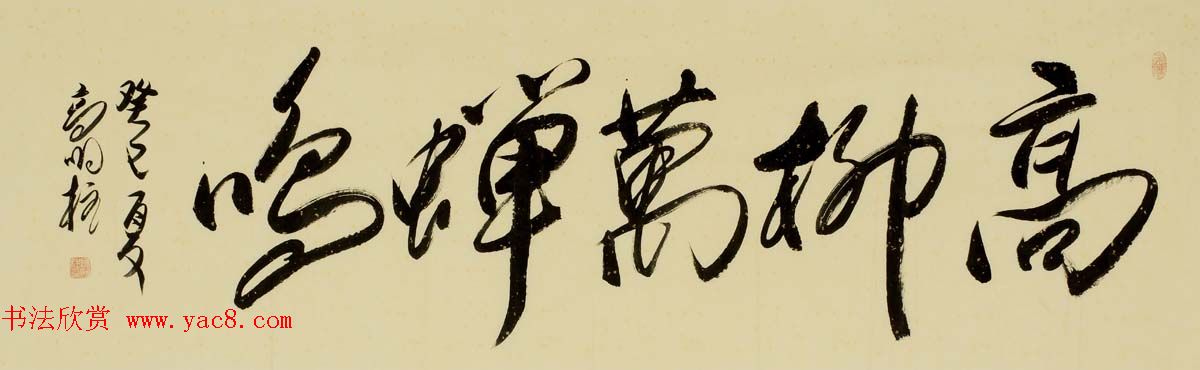 高柳萬蟬鳴
癸巳夏
高明柱
书法欣赏 www.yac8.com